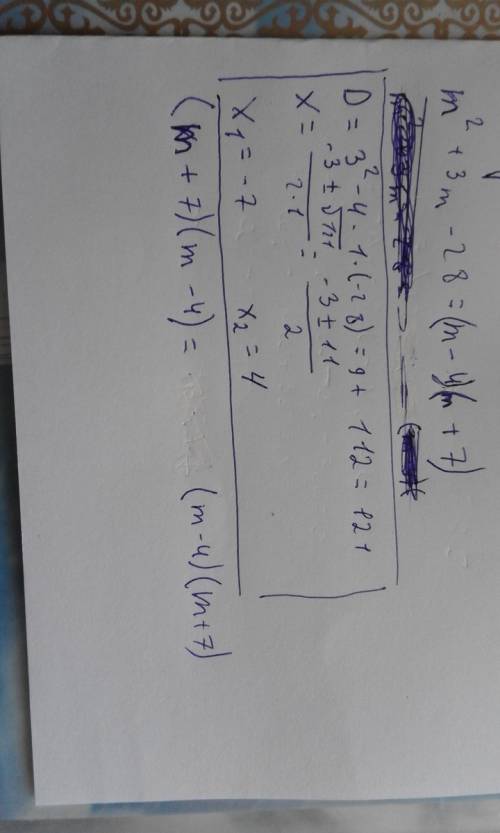 m² + 3m - 28 = (m - 4)(m + 7)
D = 3² - 4 · 1 · (-28) = 9 + 112 = 121
X = (-3 ± √121)/(2·1) = (-3 ± 11)/2
X₁ = -7 X₂ = 4
(m + 7)(m - 4) = (m-4)(m+7)